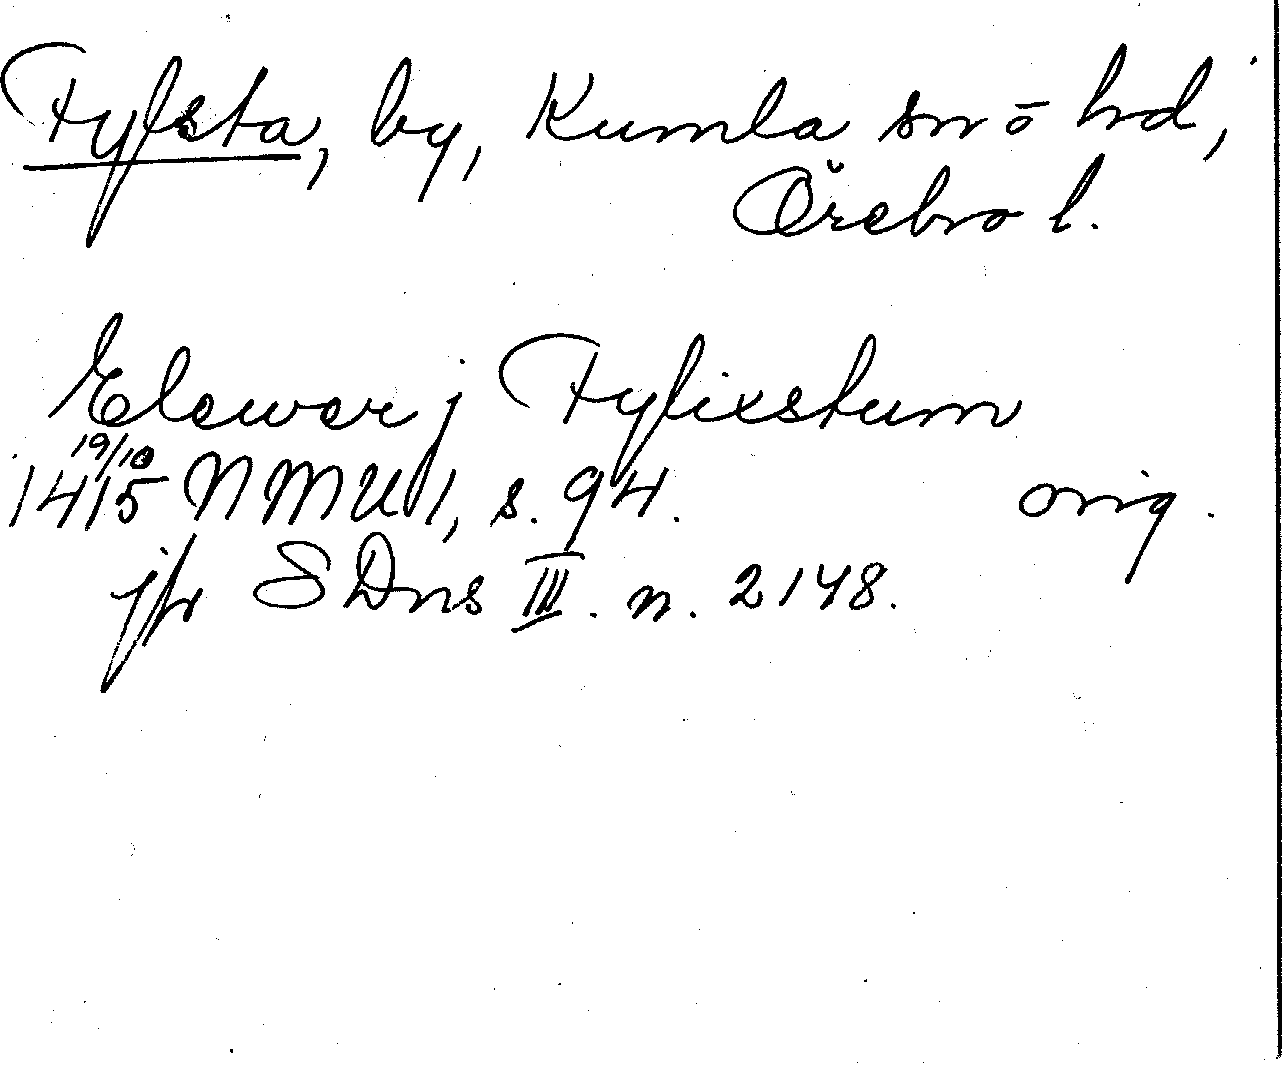 Fylsta, by, Kumla sn o hd,
Örebro l.
Elewar j Fylixstum
19/10
1415 NMU 1, s. 94. orig.
jfr SDns III. n. 2148.